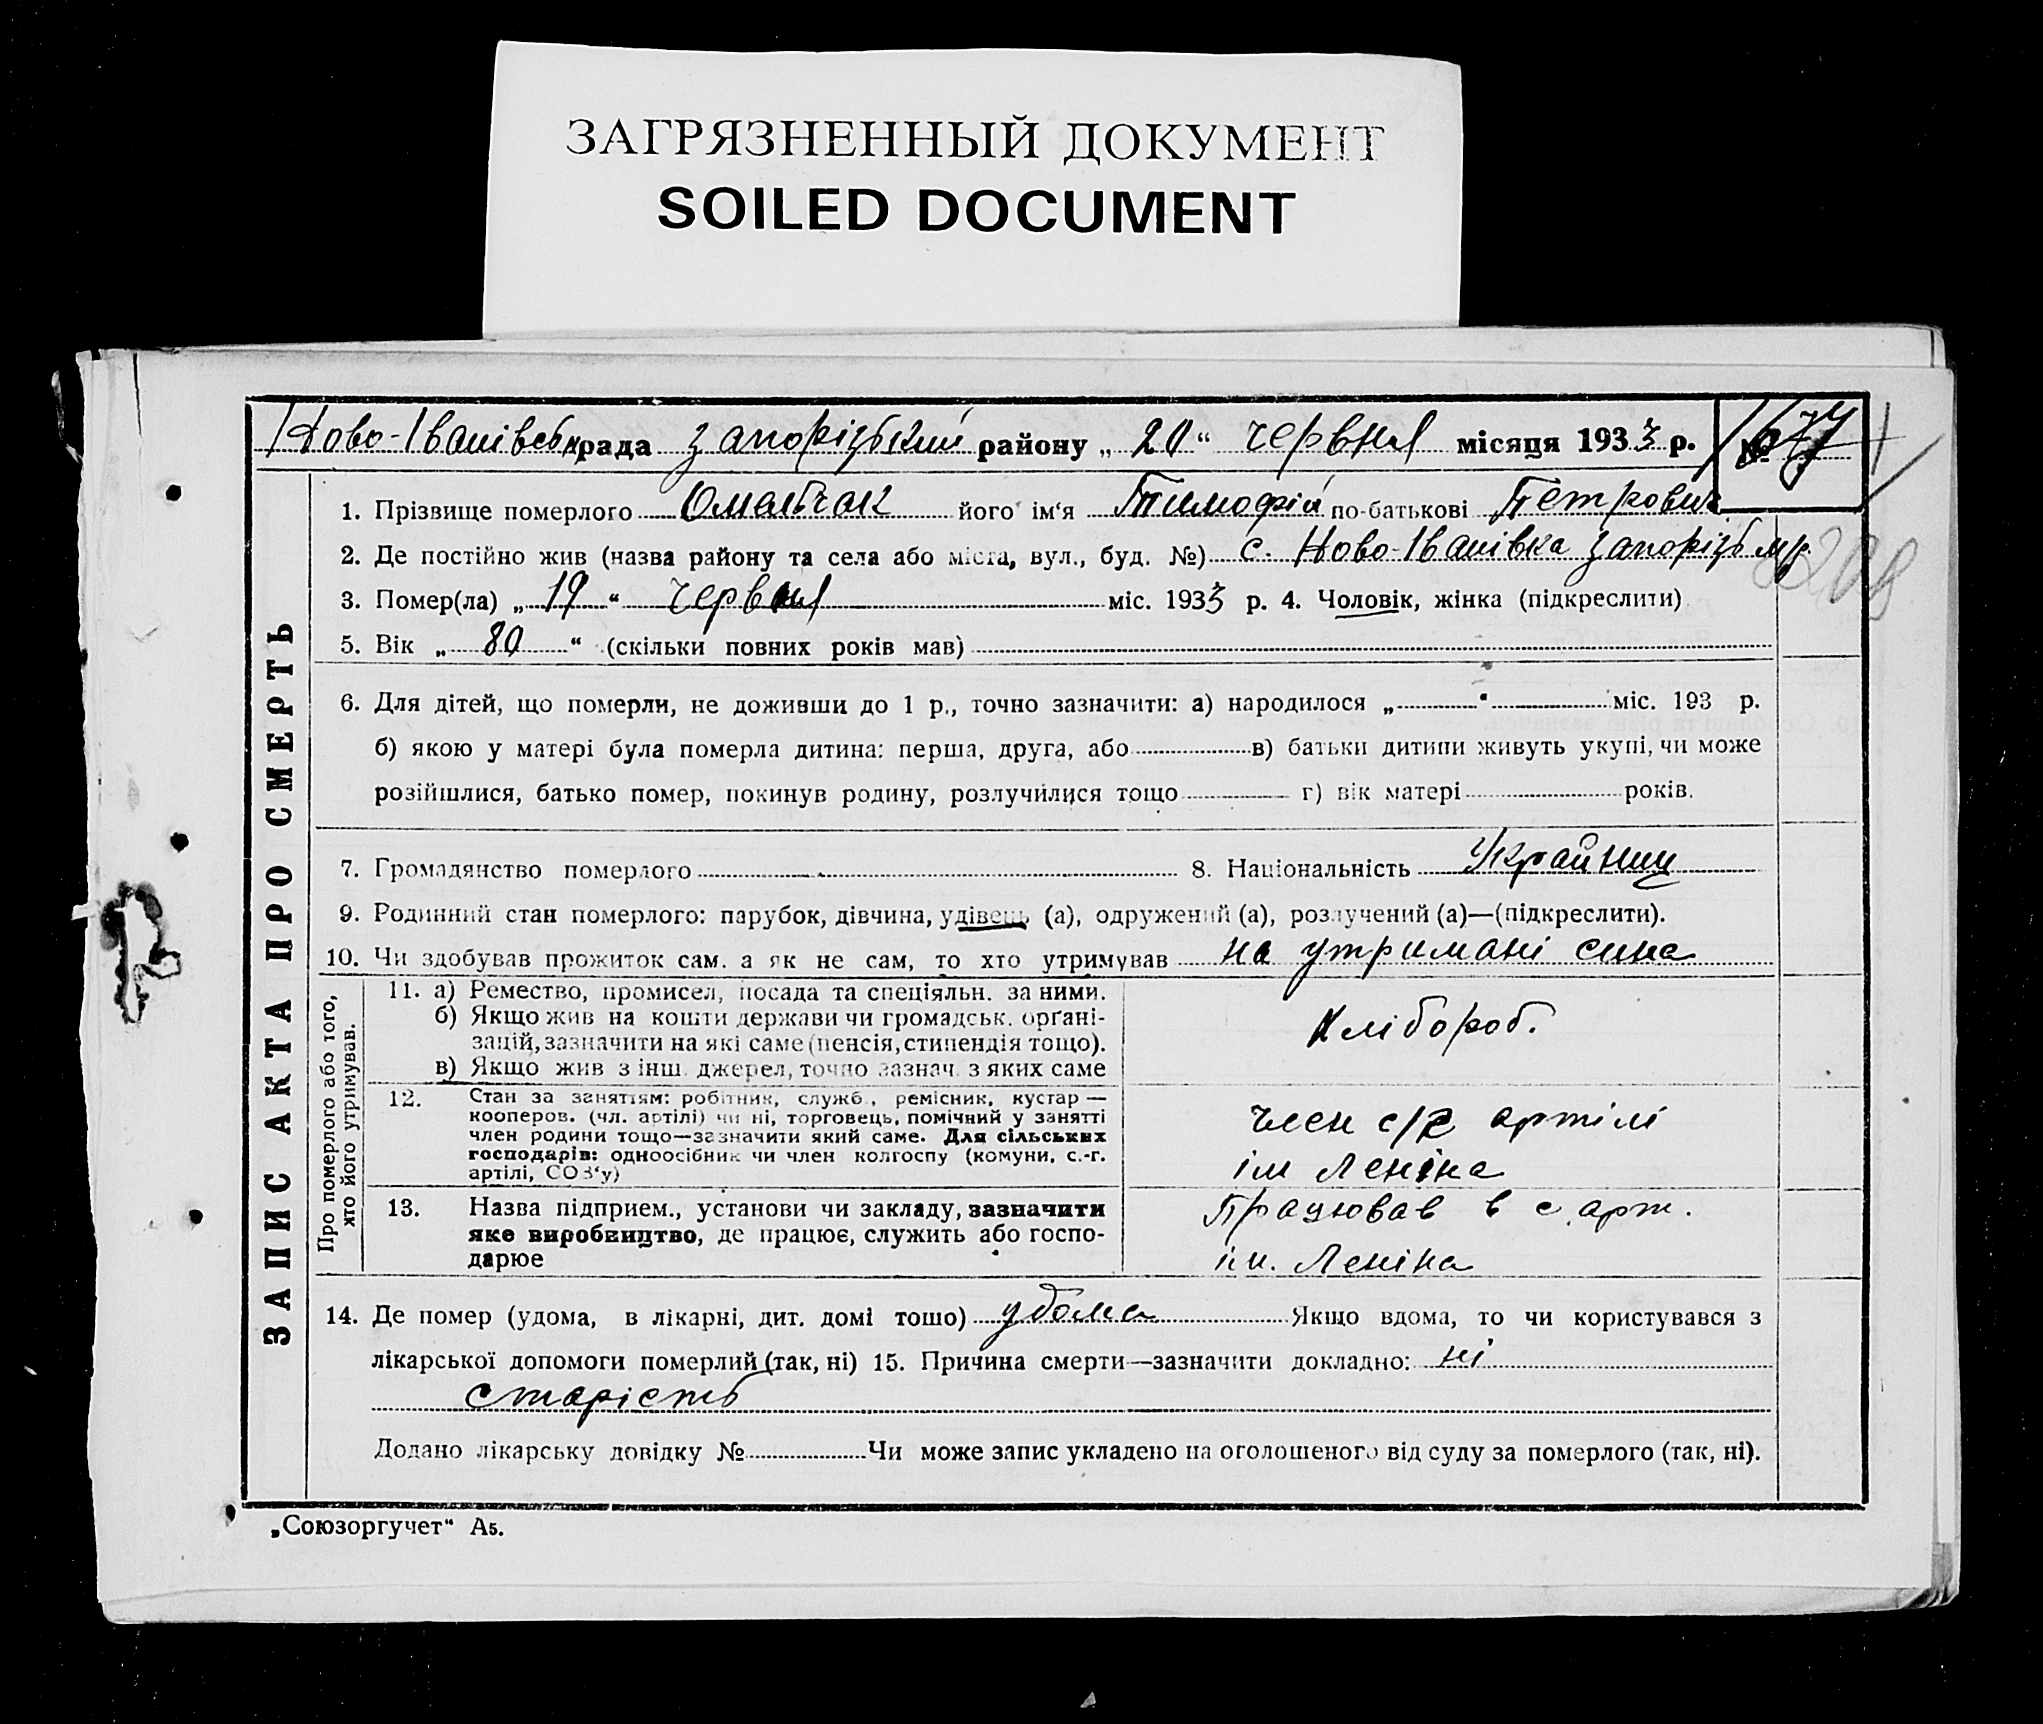 ЗАГРЯЗНЕННЫЙ ДОКУМЕНТ
SOILED DOCUMENT
Ново-Іванівськ рада запорізький району „20“ червня місяця 1933 р. №
1. Прізвище померлого Омельчак його ім'я Тимофій по-батькові Петрович
2. Де постійно жив (назва району та села або міста, вул., буд. №) с. Ново-Іванівка запорізьк
3. Помер(ла) „19“ червня міс. 1933 р. 4. Чоловік, жінка (підкреслити)
5. Вік „80“ (скільки повних років мав)
6. Для дітей, що померли, не доживши до 1 р., точно зазначити: а) народилося „ “ міс. 193 р.
б) якою у матері була померла дитина: перша, друга, або в) батьки дитини живуть укупі, чи може
розійшлися, батько помер, покинув родину, розлучилися тощо г) вік матері років.
7. Громадянство померлого 8. Національність Украйниц
9. Родинний стан померлого: парубок, дівчина, удівець (а), одружений (а), розлучений (а)—(підкреслити).
10. Чи здобував прожиток сам. а як не сам, то хто утримував на утримані сина
ЗАПИС АКТА ПРО СМЕРТЬ
Про померлого або того,
хто його утримував.
11. а) Ремество, промисел, посада та спеціяльн. за ними.
б) Якщо жив на кошти держави чи громадськ. орґані-
зацій, зазначити на які саме (пенсія, стипендія тощо).
в) Якщо жив з інш. джерел, точно зазнач. з яких саме
Хлібороб.
12. Стан за заняттям: робітник, служб., ремісник, кустар —
кооперов. (чл. артілі) чи ні, торговець, помічний у занятті
член родини тощо—зазначити який саме. Для сільських
господарів: одноосібник чи член колгоспу (комуни, с.-г.
артілі, СОЗ'у)
член с/г артілі
ім Леніна
13. Назва підприєм., установи чи закладу, зазначити
яке виробництво, де працює, служить або госпо-
дарює
Працював в с. арт.
ім. Леніна
14. Де помер (удома, в лікарні, дит. домі тощо) удома Якщо вдома, то чи користувався з
лікарської допомоги померлий (так, ні) 15. Причина смерти—зазначити докладно: ні
старість
Додано лікарську довідку № Чи може запис укладено на оголошеного від суду за померлого (так, ні).
„Союзоргучет“ А5.